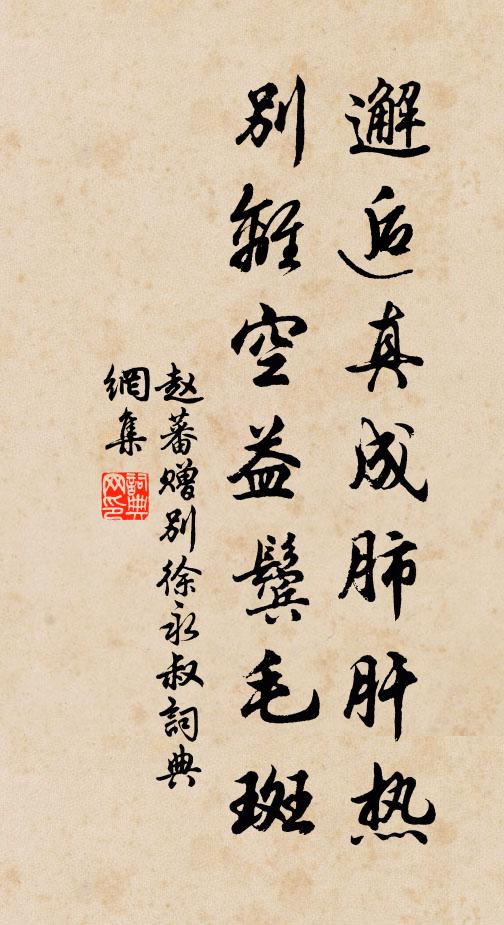 邂逅真成肺肝热
别離空益鬓毛斑
赵蕃赠别徐永叔詞典
網集
詞典
网印